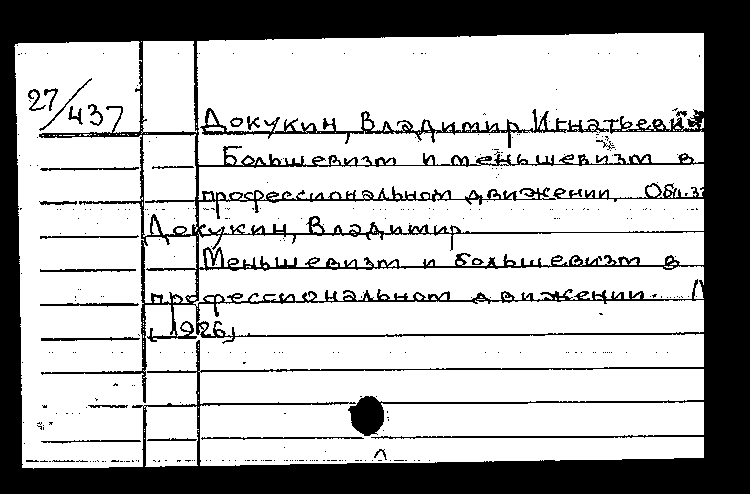 27/437
Докукин, Владимир Игнатьевич
Большевизм и меньшевизм в
профессиональном движении.
Докукин, Владимир.
Меньшевизм и большевизм в
профессиональном движении.
[1926].